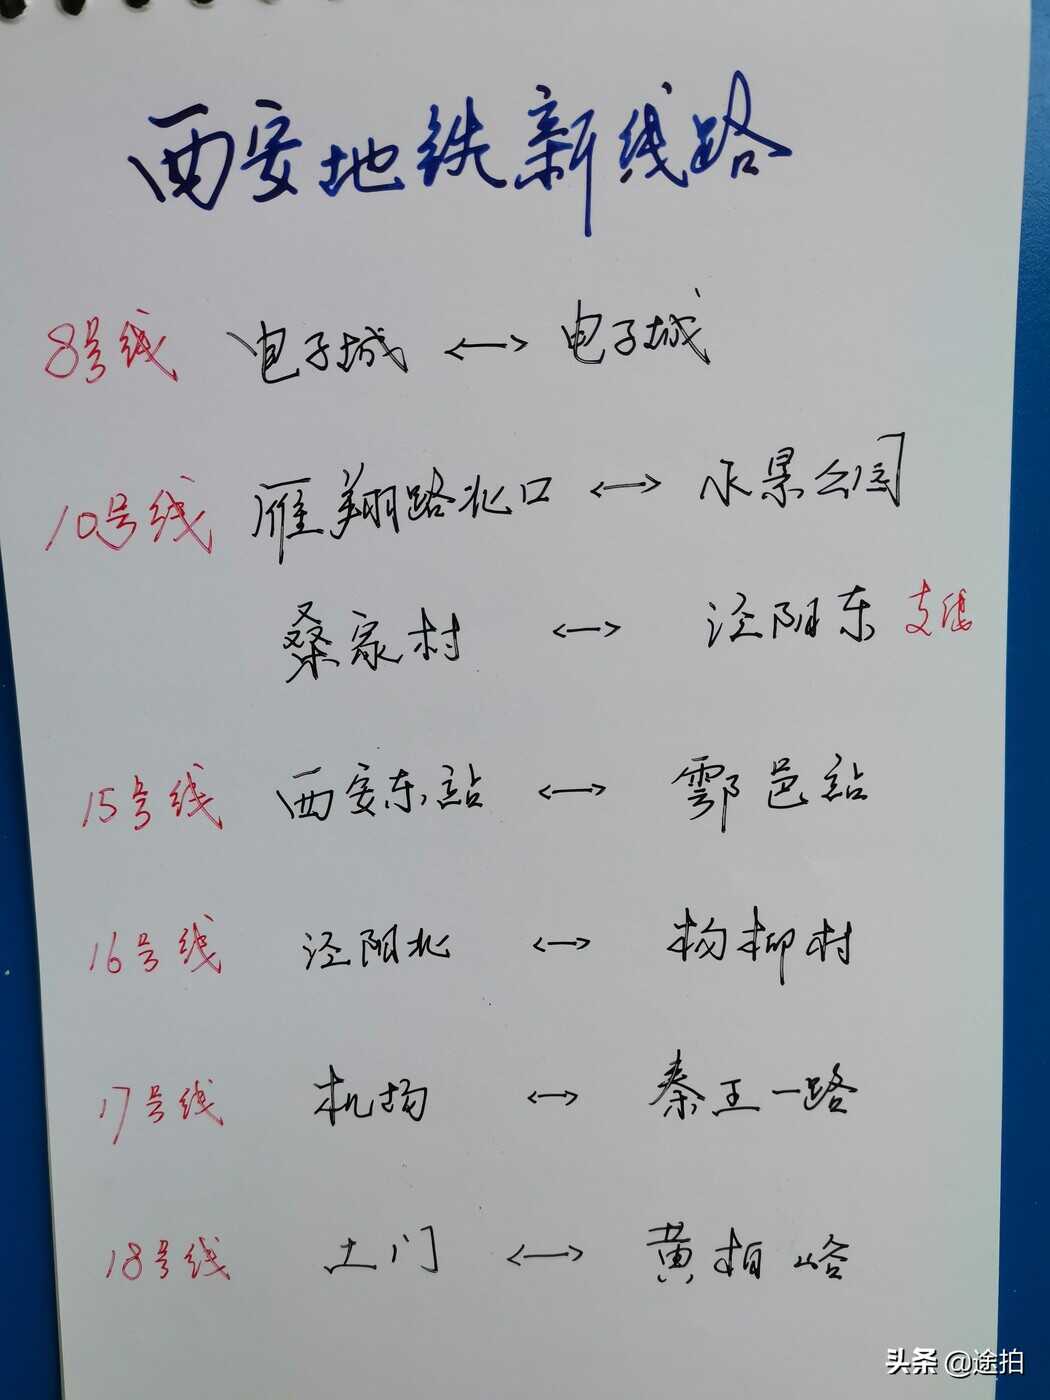 西安地铁新线路
8号线 电子城 ↔ 电子城
10号线 雁翔路北口 ↔ 水果公园
桑家村 ↔ 泾阳东 支线
15号线 西安东站 ↔ 鄠邑站
16号线 泾阳北 ↔ 杨柳村
17号线 机场 ↔ 秦王一路
18号线 土门 ↔ 黄柏峪
头条 @途拍